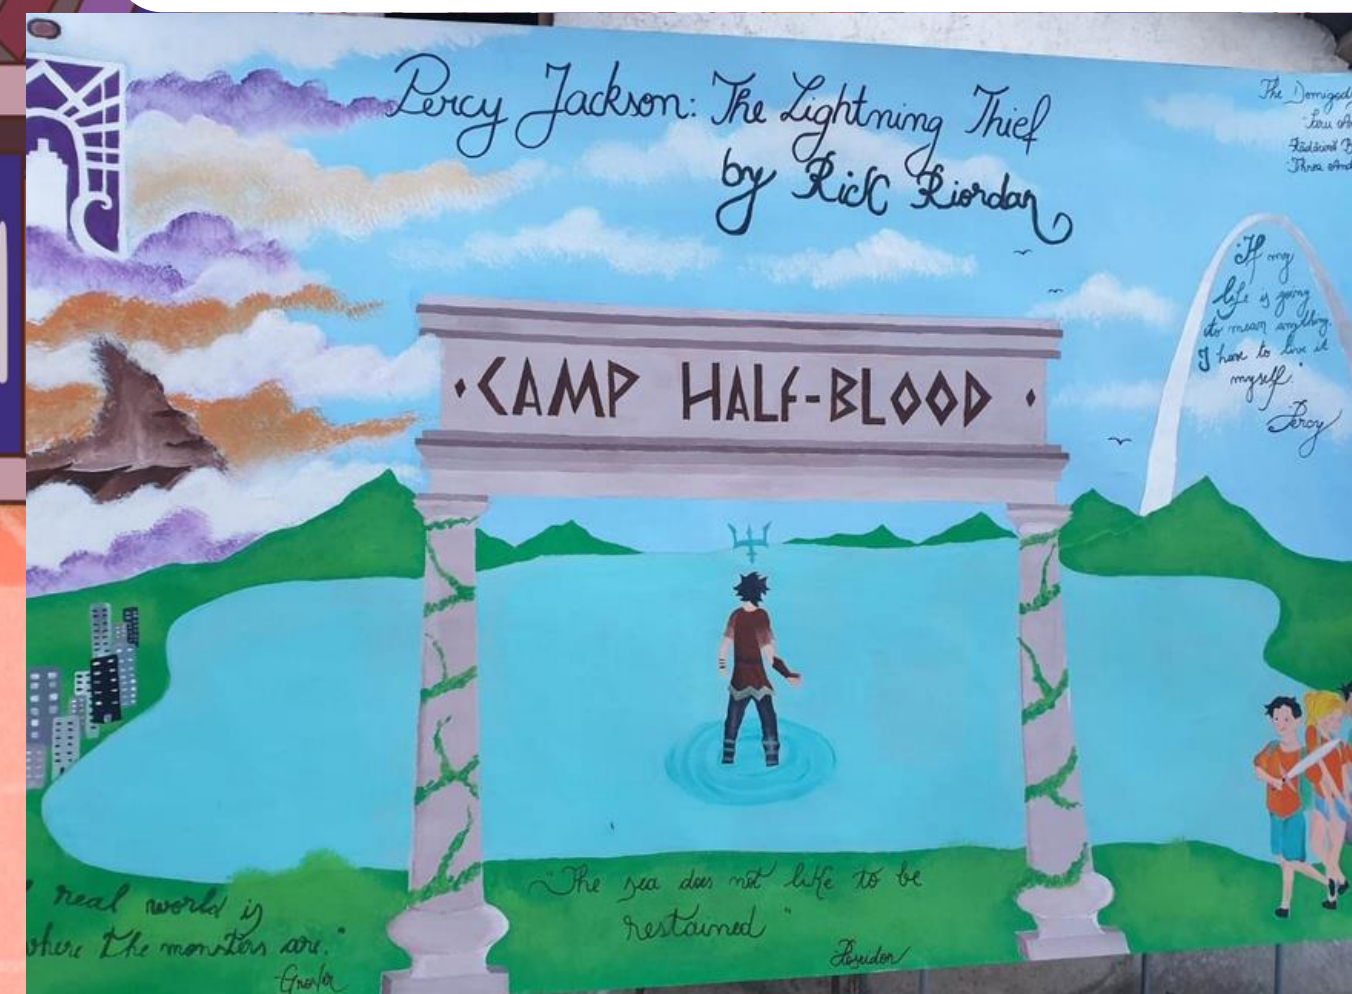 Percy Jackson: The Lightning Thief
by Rick Riordan
The Demigod
CAMP HALF-BLOOD
"If my
life is going
to mean anything
I have to live it
myself."
Percy
real world is
where the monsters are."
-Grover
"The sea does not like to be
restained"
Poseidon